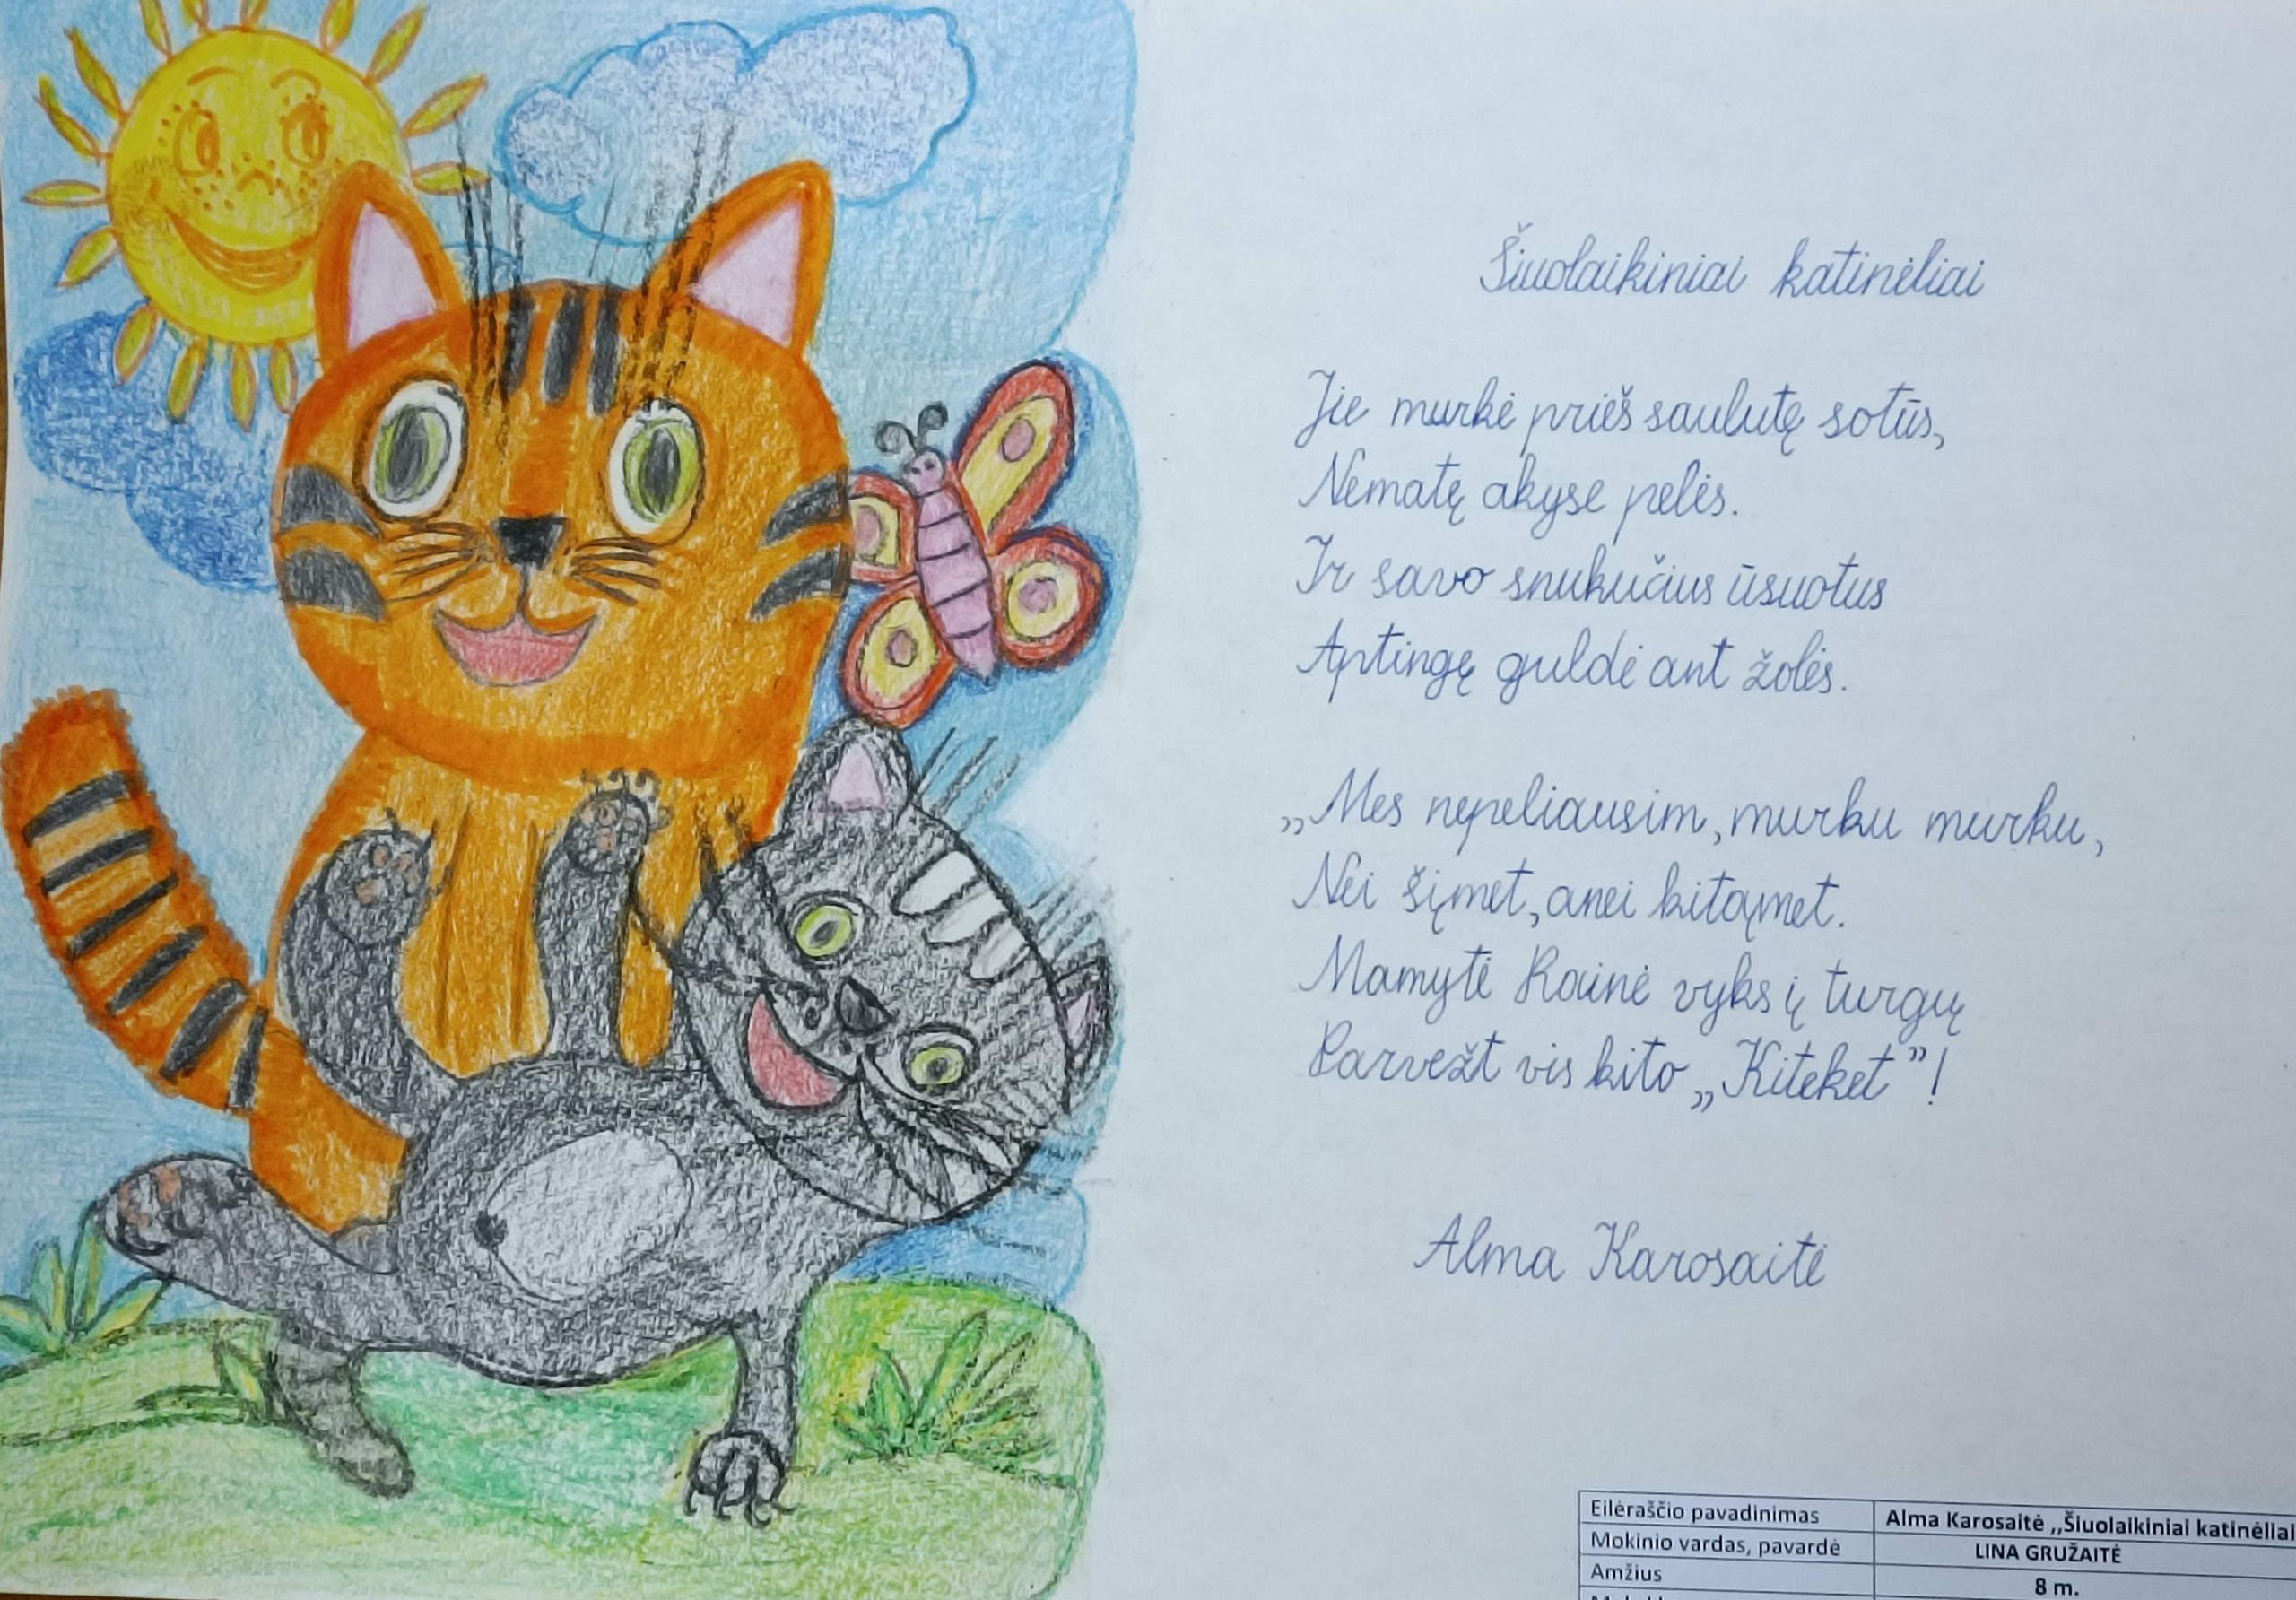 Šiuolaikiniai katinėliai
Jie murkė prieš saulutę sotūs,
Nematę akyse pelės.
Ir savo snukučius ūsuotus
Aptingę guldė ant žolės.
„Mes nepeliausim, murku murku,
Nei šįmet, anei kitąmet.
Mamytė Rainė vyks į turgų
Parvežt vis kito „Kiteket”!
Alma Karosaitė
Eilėraščio pavadinimas Alma Karosaitė ,,Šiuolaikiniai katinėliai
Mokinio vardas, pavardė LINA GRUŽAITĖ
Amžius 8 m.